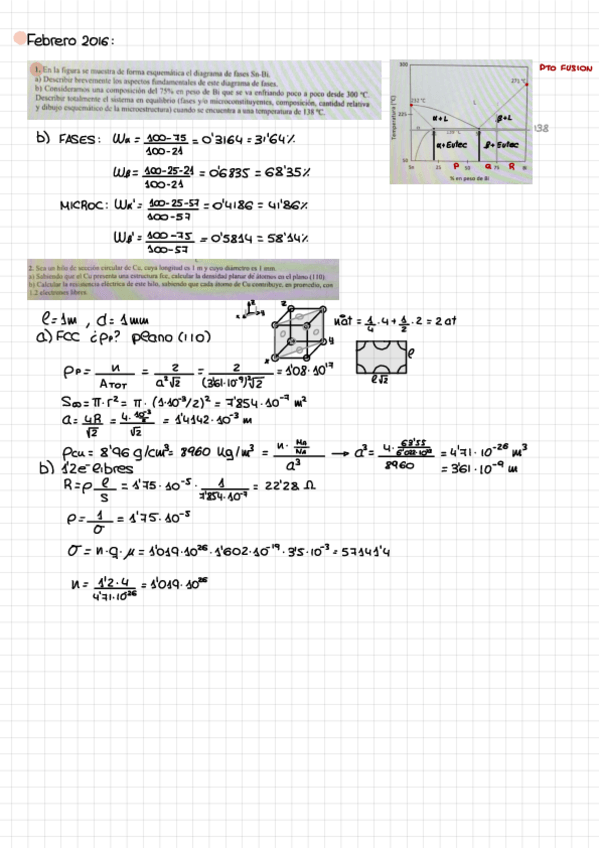 Febrero 2016:
1. En la figura se muestra de forma esquemática el diagrama de fases Sn-Bi.
a) Describir brevemente los aspectos fundamentales de este diagrama de fases.
b) Consideramos una composición del 75% en peso de Bi que se va enfriando poco a poco desde 300 ºC.
Describir totalmente el sistema en equilibrio (fases y/o microconstituyentes, composición, cantidad relativa
y dibujo esquemático de la microestructura) cuando se encuentra a una temperatura de 138 ºC.
300
225
50
Temperatura (ºC)
232 ºC
271 ºC
L
α+L
β+L
α
138
α+Eutec
β+Eutec
P
Q
R
Sn 25 50 75 Bi
% en peso de Bi
PTO FUSION
b) FASES: Wα = 100-75 / 100-21 = 0'3164 = 31'64%
Wβ = 100-25-21 / 100-21 = 0'6835 = 68'35%
MICROC: Wα' = 100-25-57 / 100-57 = 0'4186 = 41'86%
Wβ' = 100-75 / 100-57 = 0'5814 = 58'14%
2. Sea un hilo de sección circular de Cu, cuya longitud es 1 m y cuyo diámetro es 1 mm.
a) Sabiendo que el Cu presenta una estructura fcc, calcular la densidad planar de átomos en el plano (110).
b) Calcular la resistencia eléctrica de este hilo, sabiendo que cada átomo de Cu contribuye, en promedio, con
1.2 electrones libres.
l=1m, d=1mm
a) FCC ¿ρp? plano (110)
z
y
x
nºat = 1/4 · 4 + 1/2 · 2 = 2 at
l
l√2
ρp = n / ATOT = 2 / a²√2 = 2 / (3'61·10⁻⁹)²√2 = 1'08·10¹⁷
S∞ = π·r² = π·(1·10⁻³/2)² = 7'854·10⁻⁷ m²
a = 4R / √2 = 4·10⁻³/2 / √2 = 1'4142·10⁻³ m
ρcu = 8'96 g/cm³ = 8960 Kg/m³ = n · Ma/Na / a³ → a³ = 4 · 63'55/6'022·10²³ / 8960 = 4'71·10⁻²⁶ m³
= 3'61·10⁻⁹ m
b) 1'2e⁻ libres
R = ρ l/S = 1'75·10⁻⁵ · 1 / 7'854·10⁻⁷ = 22'28 Ω
ρ = 1/σ = 1'75·10⁻⁵
σ = n·q·μ = 1'019·10²⁶·1'602·10⁻¹⁹·3'5·10⁻³ = 57141'4
n = 1'2·4 / 4'71·10²⁶ = 1'019·10²⁶